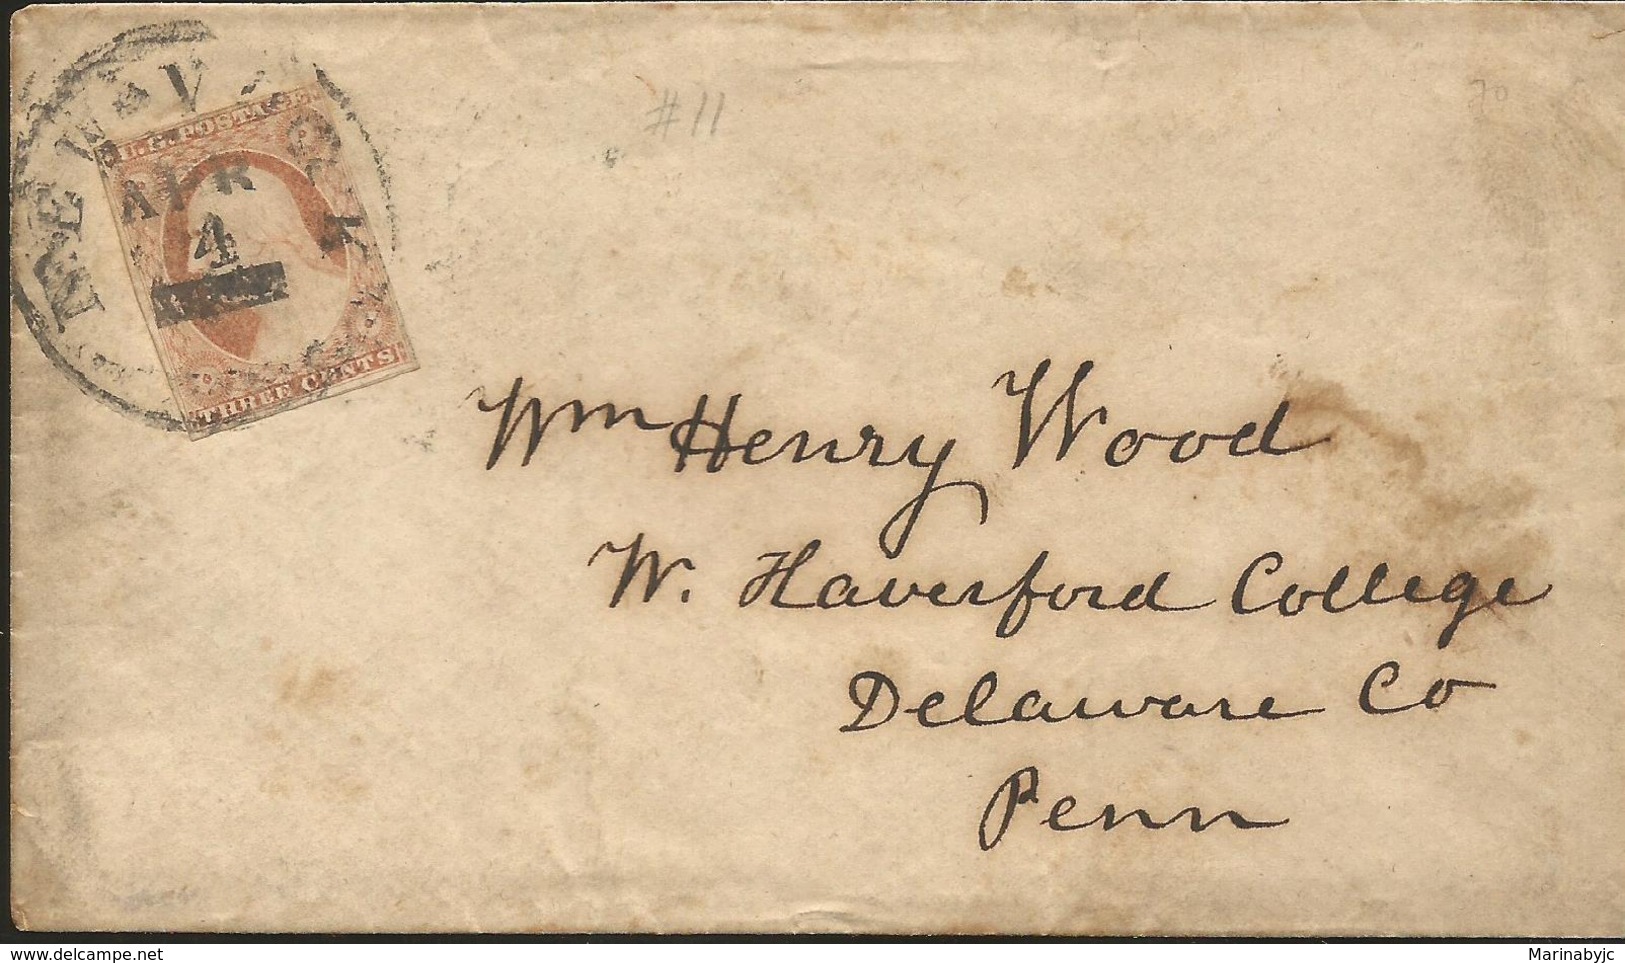 NEW-YORK
U.S. POSTAGE
APR
4
THREE CENTS
#11
70
Wm Henry Wood
W. Haverford College
Delaware Co
Penn
Marinabyjc